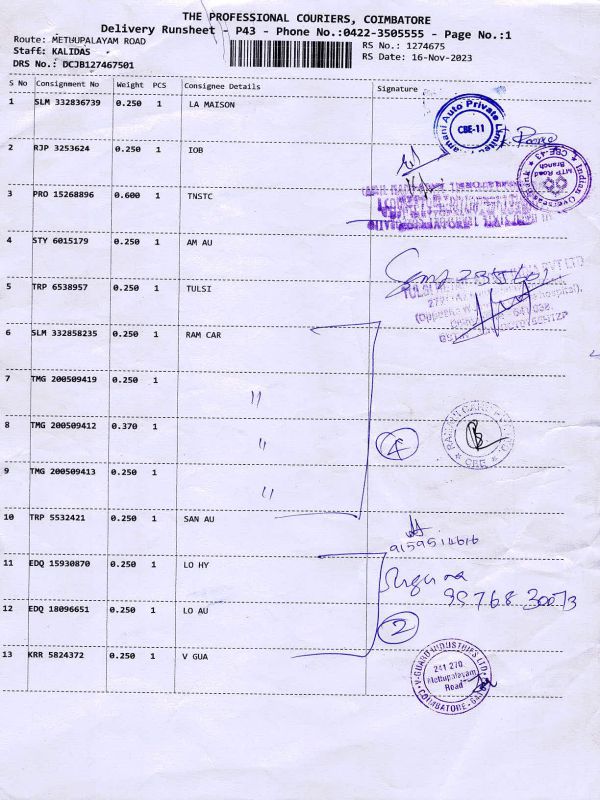 THE PROFESSIONAL COURIERS, COIMBATORE
Delivery Runsheet - P43 - Phone No.:0422-3505555 - Page No.:1
Route: METHUPALAYAM ROAD
RS No.: 1274675
Staff: KALIDAS
RS Date: 16-Nov-2023
DRS No.: DCJB127467501
S No Consignment No Weight PCS Consignee Details Signature
1 SLM 332836739 0.250 1 LA MAISON
Auto Private
CBE-11
2 RJP 3253624 0.250 1 IOB
Indian Overseas Bank
MTP Road
Branch
CBE-43
3 PRO 15268896 0.600 1 TNSTC
4 STY 6015179 0.250 1 AM AU
5 TRP 6538957 0.250 1 TULSI
TULSI
6 SLM 332858235 0.250 1 RAM CAR
7 TMG 200509419 0.250 1 "
8 TMG 200509412 0.370 1 "
4
CBE
9 TMG 200509413 0.250 1 "
10 TRP 5532421 0.250 1 SAN AU
9159514616
11 EDQ 15930870 0.250 1 LO HY
Suguna
99768 30073
12 EDQ 18096651 0.250 1 LO AU
2
13 KRR 5824372 0.250 1 V GUA
V-GUARD INDUSTRIES LTD
241 270
Mettupalayam
Road
COIMBATORE